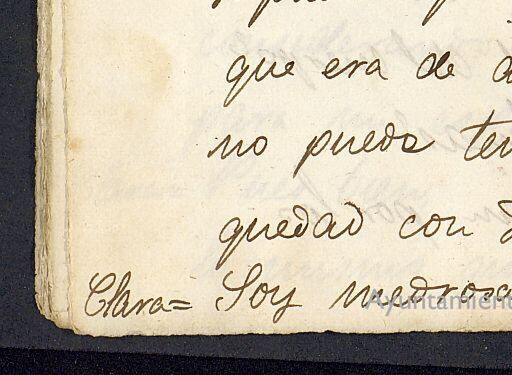 que era de
no puedo
quedad con
Clara= Soy medrosa
Ayuntamient